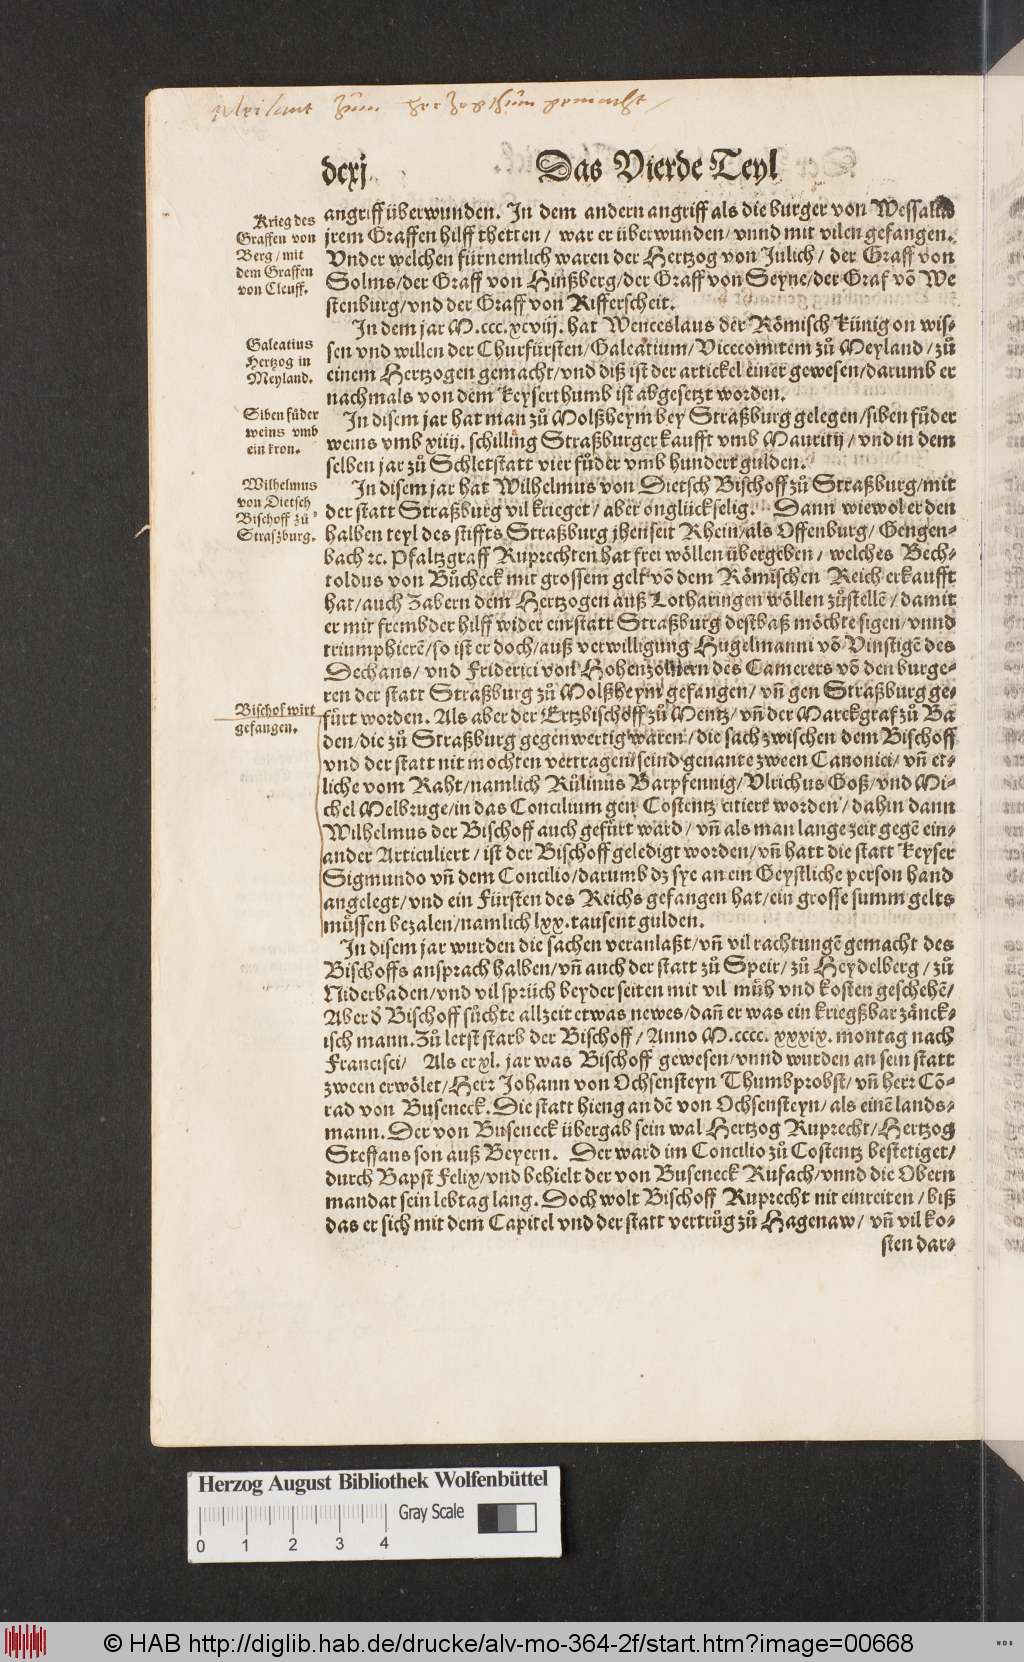 zum hertzogthum gemacht
dcxj
Das Vierde Teyl
Krieg des
Graffen von
Berg / mit
dem Graffen
von Cleuff.
Galeatius
Hertzog in
Meyland.
Siben fůder
weins vmb
ein kron.
Wilhelmus
von Dietsch
Bischoff zů
Straßburg.
Bischof wirt
gefangen.
angriff überwunden. In dem andern angriff als die burger von Wessalus
jrem Graffen hilff thetten / war er überwunden / vnnd mit vilen gefangen.
Vnder welchen fürnemlich waren der Hertzog von Julich / der Graff von
Solms / der Graff von Hinßberg / der Graff von Seyne / der Graf võ We
stenburg / vnd der Graff von Rifferscheit.
In dem jar M.ccc.xcviij. hat Wenceslaus der Römisch künig on wis⸗
sen vnd willen der Churfürsten / Galeatium / Vicecomitem zů Meyland / zů
einem Hertzogen gemacht / vnd diß ist der artickel einer gewesen / darumb er
nachmals von dem keyserthumb ist abgesetzt worden.
In disem jar hat man zů Molßheym bey Straßburg gelegen / siben fůder
weins vmb xiiij. schilling Straßburger kaufft vmb Mauritij / vnd in dem
selben jar zů Schletstatt vier fůder vmb hundert gulden.
In disem jar hat Wilhelmus von Dietsch Bischoff zů Straßburg / mit
der statt Straßburg vil krieget / aber onglückselig. Dann wiewol er den
halben teyl des stiffts Straßburg jhenseit Rhein / als Offenburg / Gengen⸗
bach ꝛc. Pfaltzgraff Ruprechten hat frei wöllen übergeben / welches Bech⸗
toldus von Bůcheck mit grossem gelt võ dem Römischen Reich erkaufft
hat / auch Zabern dem Hertzogen auß Lotharingen wöllen zůstellẽ / damit
er mit frembder hilff wider ein statt Straßburg destbaß möchte sigen / vnnd
triumphierẽ / so ist er doch / auß verwilligung Hugelmanni võ Vinstigẽ des
Dechans / vnd Friderici von Hohenzollern des Camerers võ den burge⸗
ren der statt Straßburg zů Molßheym gefangen / vñ gen Straßburg ge⸗
fürt worden. Als aber der Ertzbischoff zů Mentz / vñ der Marckgraf zů Ba
den / die zů Straßburg gegenwertig waren / die sach zwischen dem Bischoff
vnd der statt nit mochten vertragen / seind genante zween Canonici / vñ et⸗
liche vom Raht / namlich Rülinus Barpfennig / Vlrichus Goß / vnd Mi⸗
chel Melbruge / in das Concilium gen Costentz citiert worden / dahin dann
Wilhelmus der Bischoff auch gefürt ward / vñ als man lange zeit gegẽ ein⸗
ander Articuliert / ist der Bischoff geledigt worden / vñ hatt die statt keyser
Sigmundo vñ dem Concilio / darumb dz sye an ein Geystliche person hand
angelegt / vnd ein Fürsten des Reichs gefangen hat / ein grosse summ gelts
müssen bezalen / namlich lxx. tausent gulden.
In disem jar wurden die sachen veranlaßt / vñ vil rachtungẽ gemacht des
Bischoffs ansprach halben / vñ auch der statt zů Speir / zů Heydelberg / zů
Niderbaden / vnd vil sprüch beyder seiten mit vil müh vnd kosten geschehẽ /
Aber d̕ Bischoff süchte allzeit etwas newes / dañ er was ein kriegßbar zänck⸗
isch mann. Zů letst starb der Bischoff / Anno M.cccc. xxxix. montag nach
Francisci / Als er xl. jar was Bischoff gewesen / vnnd wurden an sein statt
zween erwölet / Herr Johann von Ochsensteyn Thumbprobst / vñ herr Cõ⸗
rad von Buseneck. Die statt hieng an dẽ von Ochsensteyn / als einẽ lands⸗
mann. Der von Buseneck übergab sein wal Hertzog Ruprecht / Hertzog
Steffans son auß Beyern. Der ward im Concilio zů Costentz bestetiget /
durch Bapst Felix / vnd behielt der von Buseneck Rufach / vnnd die Obern
mandat sein lebtag lang. Doch wolt Bischoff Ruprecht nit einreiten / biß
das er sich mit dem Capitel vnd der statt vertrůg zů Hagenaw / vñ vil ko⸗
sten dar⸗
Herzog August Bibliothek Wolfenbüttel
Gray Scale
0 1 2 3 4
© HAB http://diglib.hab.de/drucke/alv-mo-364-2f/start.htm?image=00668